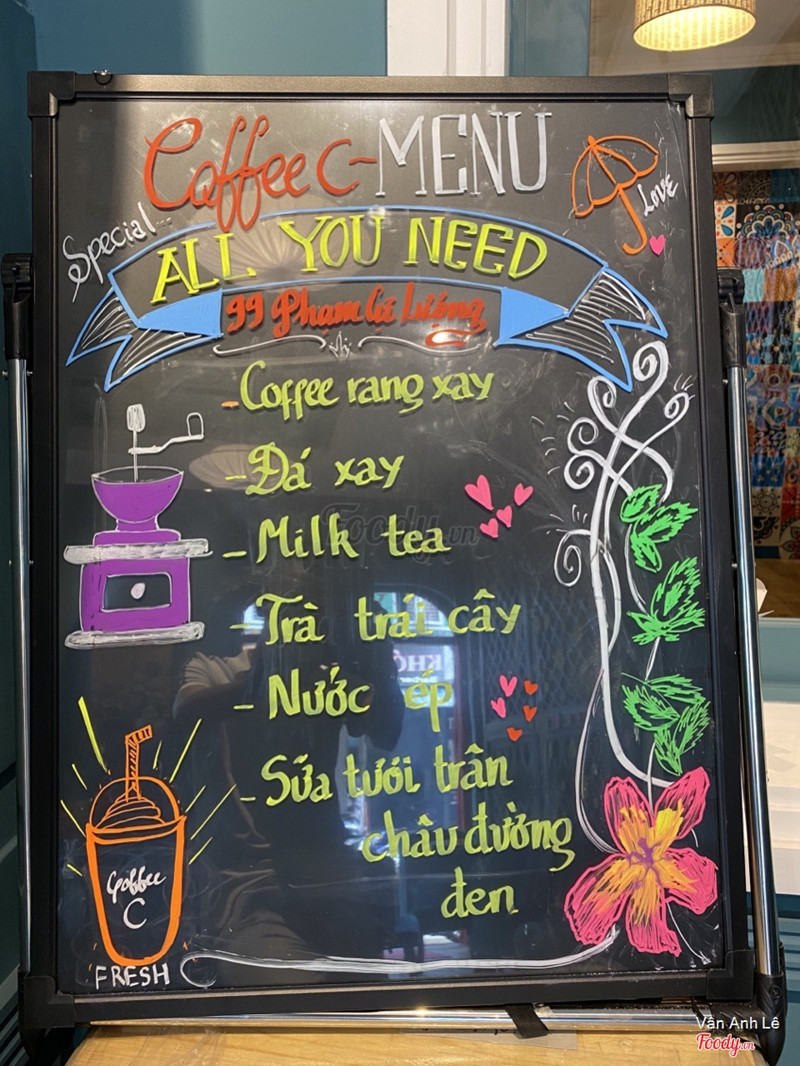 Coffee C-MENU
LOVE
Special...
ALL YOU NEED
99 Phạm Cự Lượng
- Coffee rang xay
- Đá xay
- Milk tea
- Trà trái cây
- Nước ép
- Sữa tươi trân
châu đường
đen
Coffee
C
FRESH
Foody.vn
Vân Anh Lê
Foody.vn